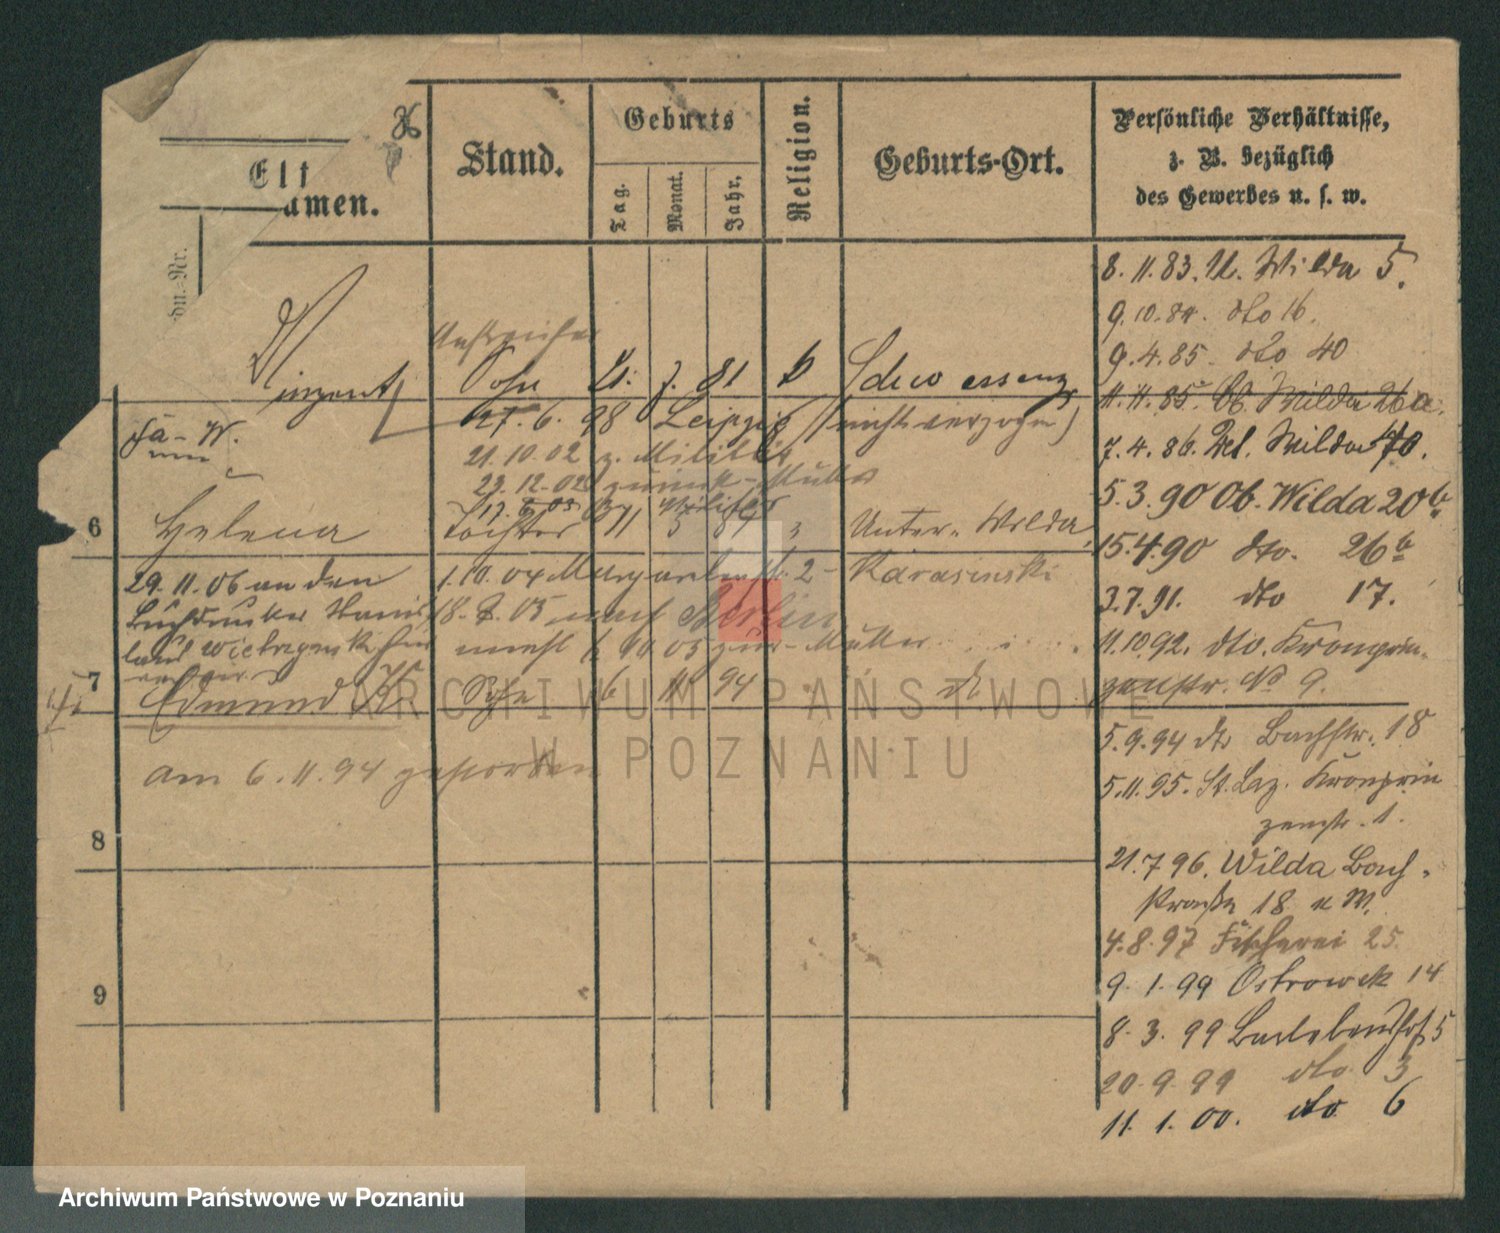 Elt
amen.
Stand.
Geburts
Tag.
Monat.
Jahr.
Religion.
Geburts-Ort.
Persönliche Verhältnisse,
z. B. bezüglich
des Gewerbes u. s. w.
dn.-Nr.
8. 11. 83. U. Wilda 5.
9. 10. 84. dto 16.
9. 4. 85. dto 40
11. 11. 85. Ob. Wilda 26a.
7. 4. 86. Wilda 40.
5. 3. 90 Ob. Wilda 20b.
15. 4. 90 dto. 26a
3. 7. 91. dto 17.
11. 10. 92. dto. Kronprin-
zenstr. No 9.
5. 9. 94 dto Bachstr. 18
5. 11. 95. St. Laz. Kronprin
zenstr. 1.
21. 7 96. Wilda Bach-
straße 18 u W.
4. 8. 97 Fischerei 25
9. 1. 99 Ostrowek 14
8. 3. 99 5
20. 9. 99 dto 3
11. 1. 00. dto 6
Vinzent
Sohn 21. 7. 81
27. 6. 98 Leipzig (nicht verzogen)
21. 10. 02 z. Militär
23. 12. 02 zurück - Mutter
6 Helena Tochter 11 5 84 Unter-Wilda
29. 11. 06 an den
Buchdrucker
1. 10. 04 2 - Karasinski
18. 05 nach Berlin
10 05 zur Mutter
7 Edmund Sohn 6 94 dto
am 6. 11. 94 gestorben
8
9
ARCHIWUM PAŃSTWOWE
W POZNANIU
Archiwum Państwowe w Poznaniu